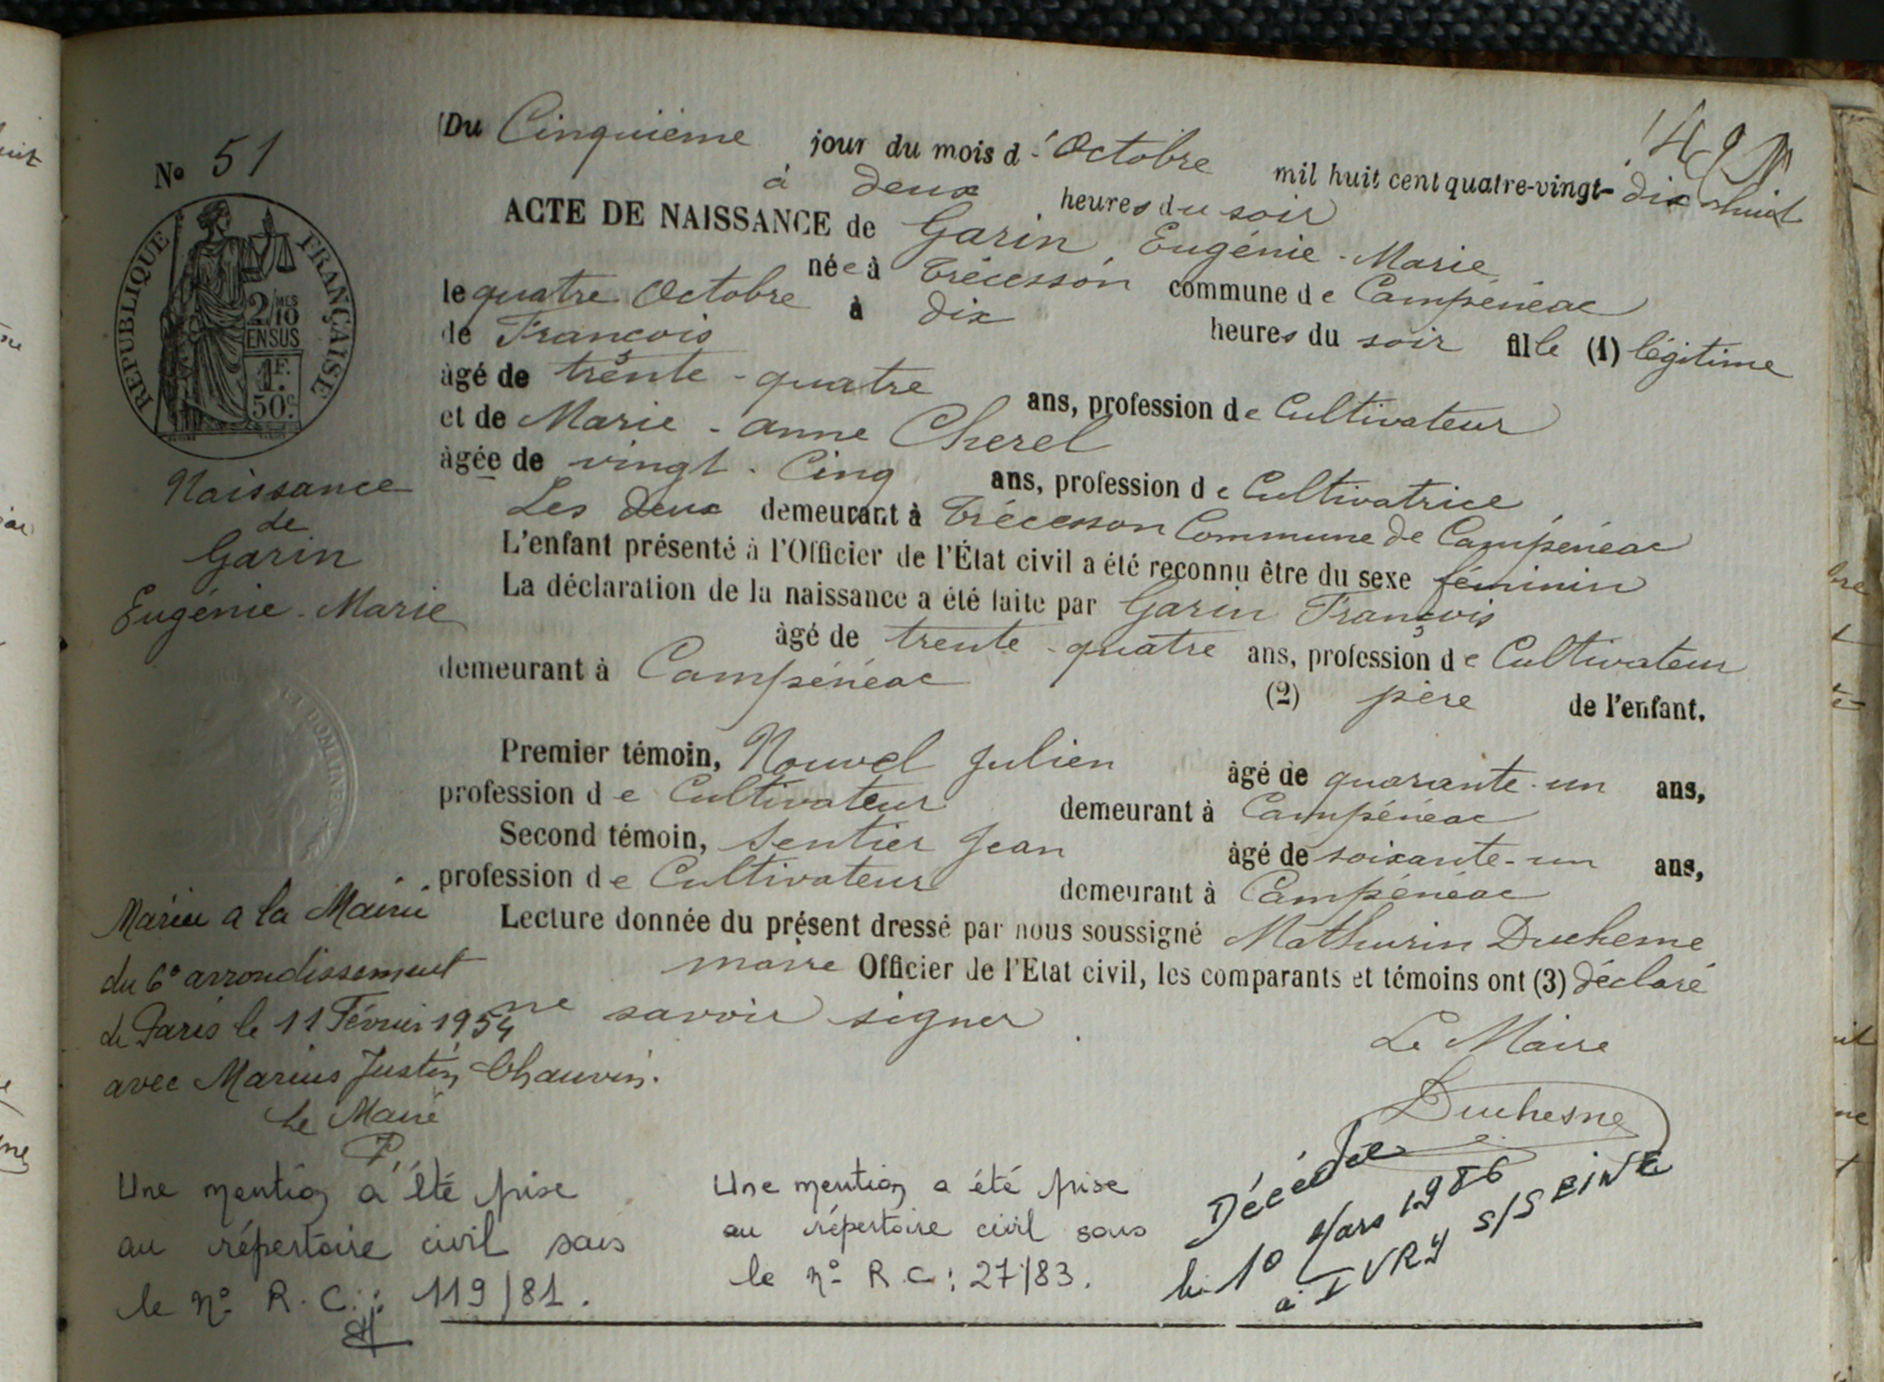 Nº 51
Du Cinquième jour du mois d'Octobre mil huit cent quatre-vingt-dix huit
à deux heures du soir
ACTE DE NAISSANCE de Garin Eugénie-Marie
née à Trécesson commune de Campénéac
le quatre Octobre à dix heures du soir fille (1) légitime
de François
âgé de trente-quatre ans, profession de Cultivateur
et de Marie-anne Cherel
âgée de vingt-Cinq ans, profession de Cultivatrice
Les deux demeurant à Trécesson Commune de Campénéac
L'enfant présenté à l'Officier de l'État civil a été reconnu être du sexe féminin
La déclaration de la naissance a été faite par Garin François
âgé de trente-quatre ans, profession de Cultivateur
demeurant à Campénéac (2) père de l'enfant.
Premier témoin, Nouvel Julien âgé de quarante-un ans,
profession de Cultivateur demeurant à Campénéac
Second témoin, Sentier Jean âgé de soixante-un ans,
profession de Cultivateur demeurant à Campénéac
Lecture donnée du présent dressé par nous soussigné Mathurin Duchesne
maire Officier de l'Etat civil, les comparants et témoins ont (3) déclaré
ne savoir signer
Le Maire
Duchesne
RÉPUBLIQUE FRANÇAISE
2/10 MES
EN SUS
1F.
50c.
Naissance
de
Garin
Eugénie-Marie
Mariée a la Mairie
du 6º arrondissement
de Paris le 11 Février 1954
avec Marius Justin Chauvin.
Le Maire
Une mention a été prise
au répertoire civil sous
le nº R.C.: 119/81.
Une mention a été prise
au répertoire civil sous
le nº R.C: 27/83.
Décédée
le 1º Mars 1986
à IVRY S/SEINE